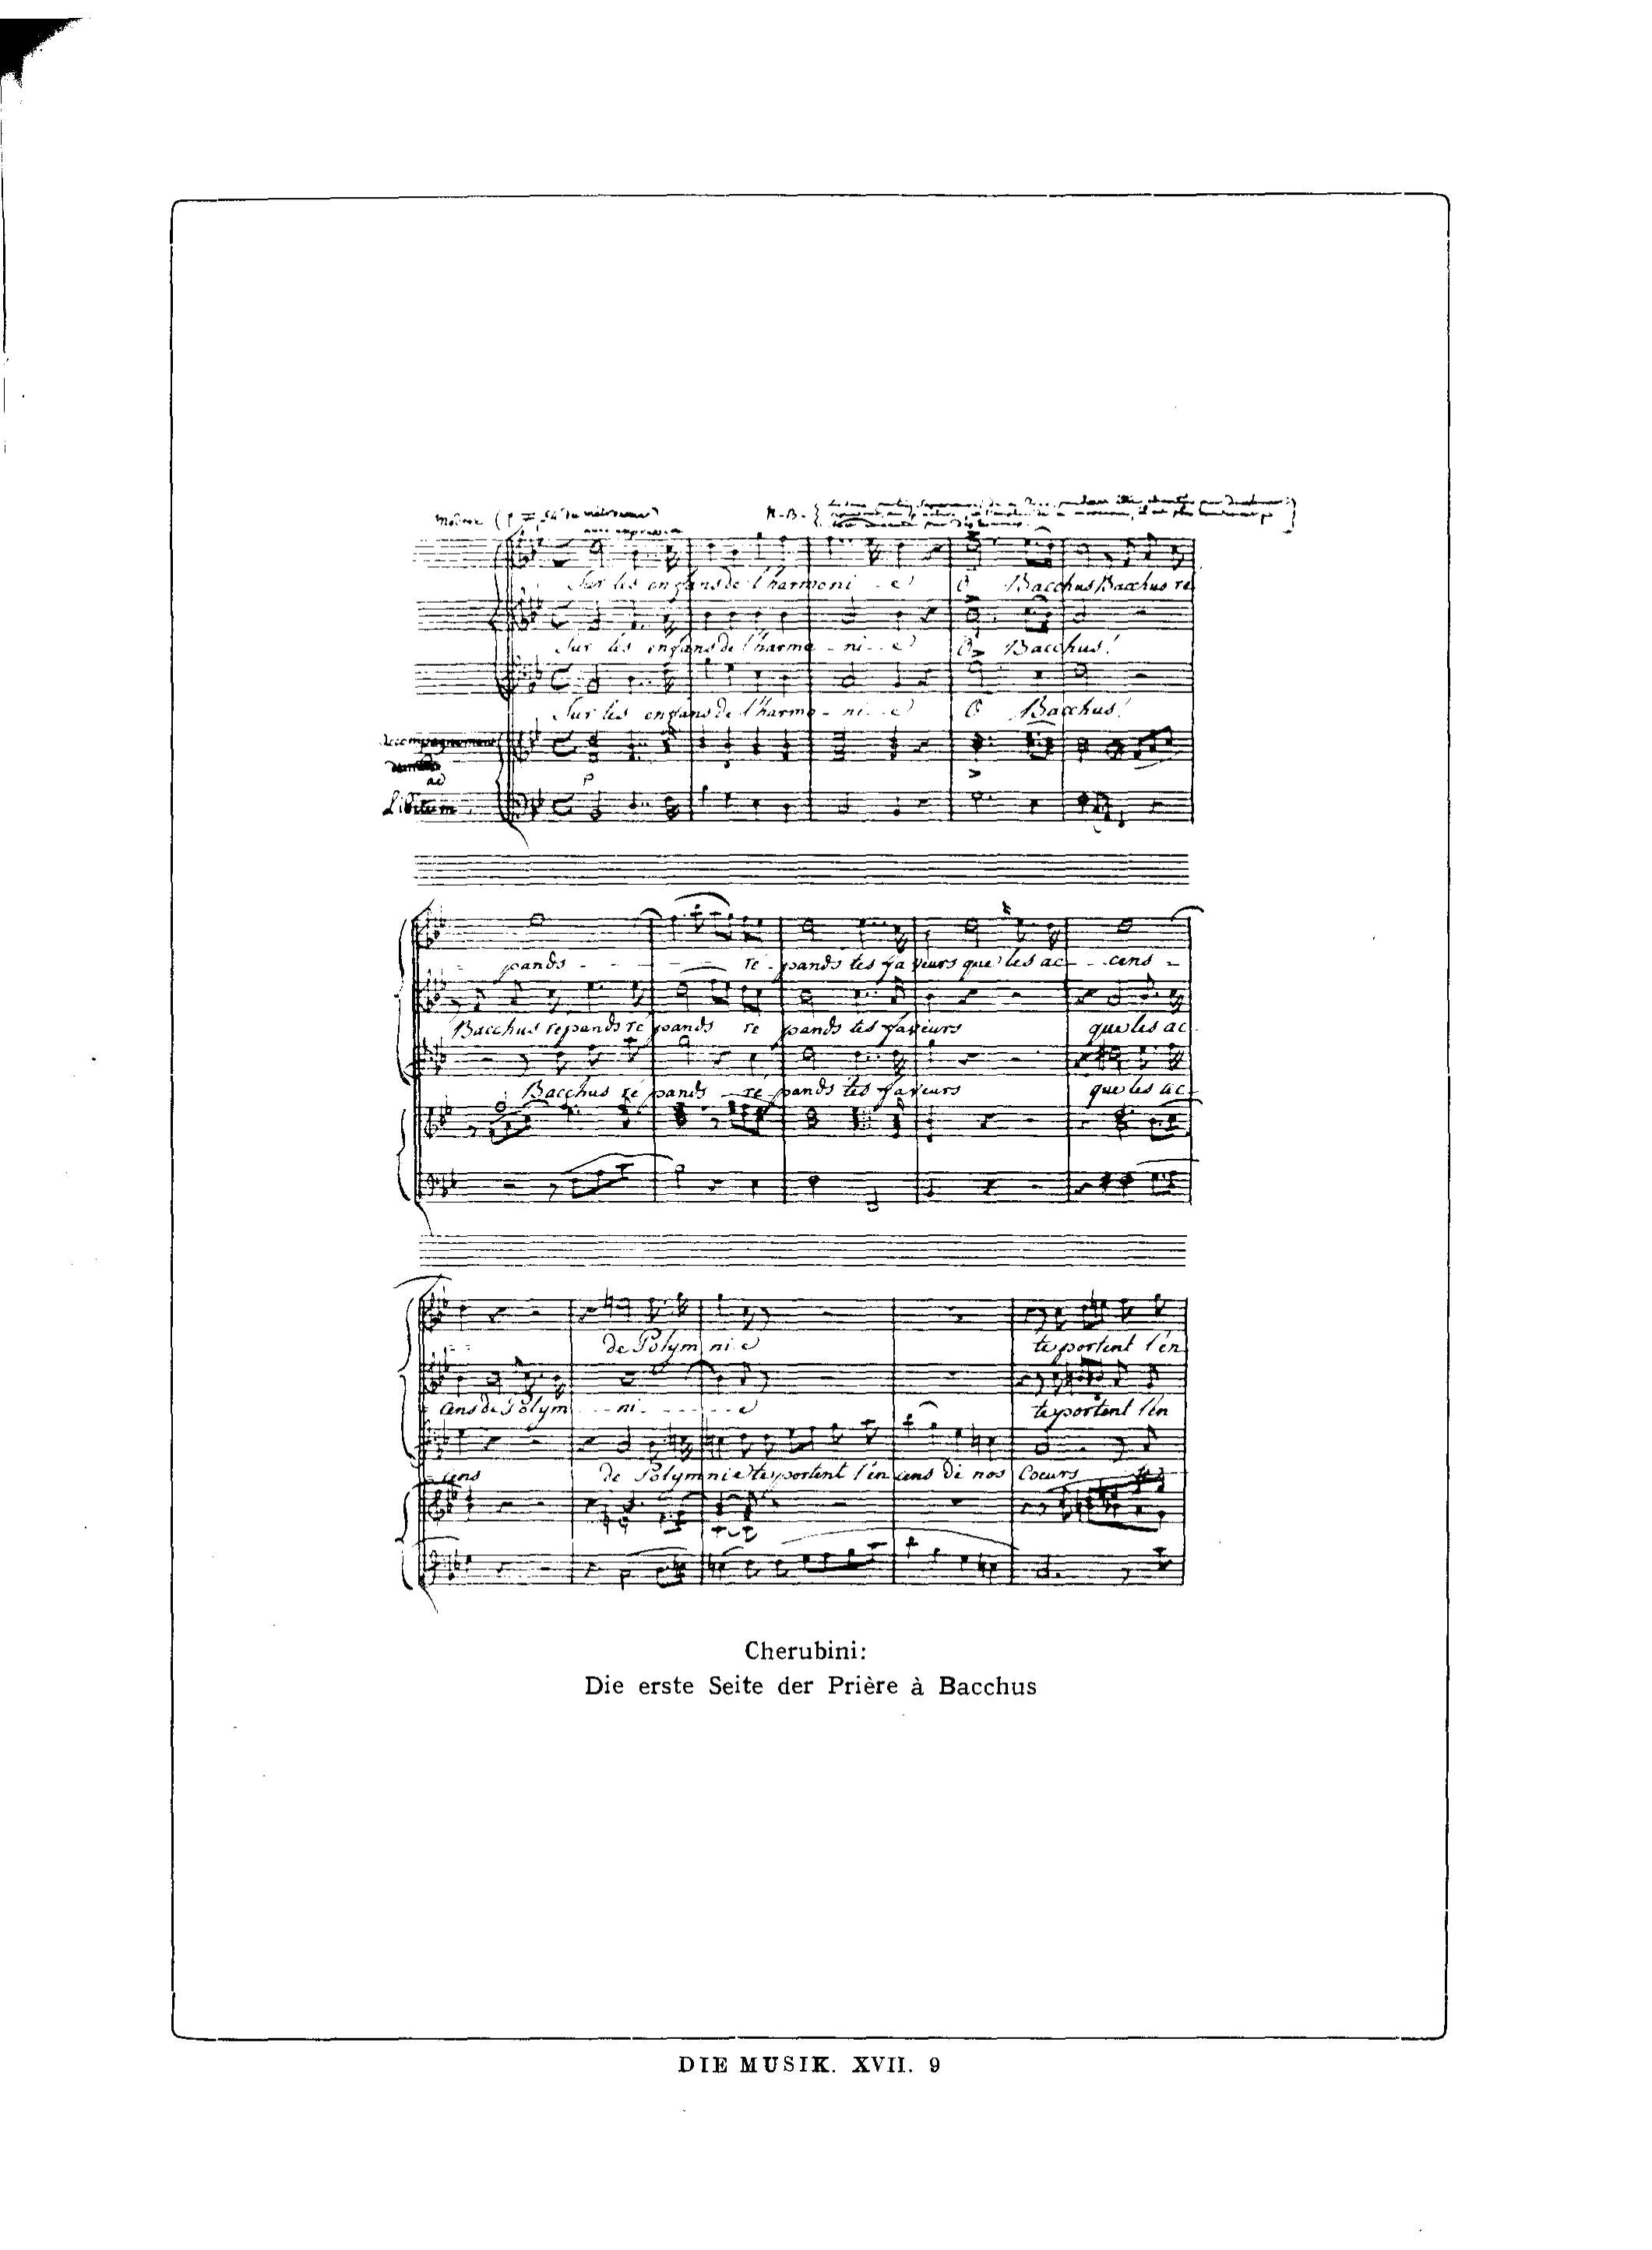 N.B.
avec expression
Sur les enfans de l'harmoni - e O Bacchus Bacchus ré
Sur les enfans de l'harmo - ni - e O Bacchus!
Sur les enfans de l'harmo - ni - e O Bacchus!
Accompagnement
ad
Libitum
P
pands - - - - re - pands tes faveurs que les ac - - cens -
Bacchus repands re pands re pands tes faveurs que les ac
Bacchus ré pands - ré - pands tes faveurs que les ac -
de Polym ni e
cens de Polym - - - ni - - - - - e te portent l'en
te portent l'en
- cens de Polymnie te portent l'en cens de nos Coeurs
Cherubini:
Die erste Seite der Prière à Bacchus
DIE MUSIK. XVII. 9